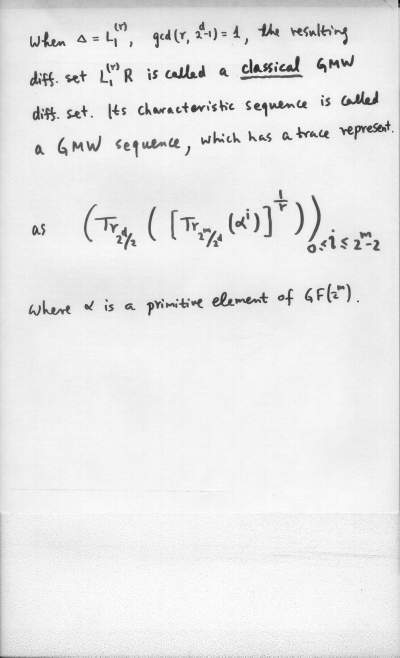 When Δ = L₁⁽ʳ⁾, gcd(r, 2ᵈ-1) = 1, the resulting
diff. set L₁⁽ʳ⁾ R is called a classical GMW
diff. set. Its characteristic sequence is called
a GMW sequence, which has a trace represent.
as (Tr_{2^d/2} ( [Tr_{2^m/2^d} (α^i)]^{1/r} ))_{0≤i≤2^m-2}
where α is a primitive element of GF(2ᵐ).